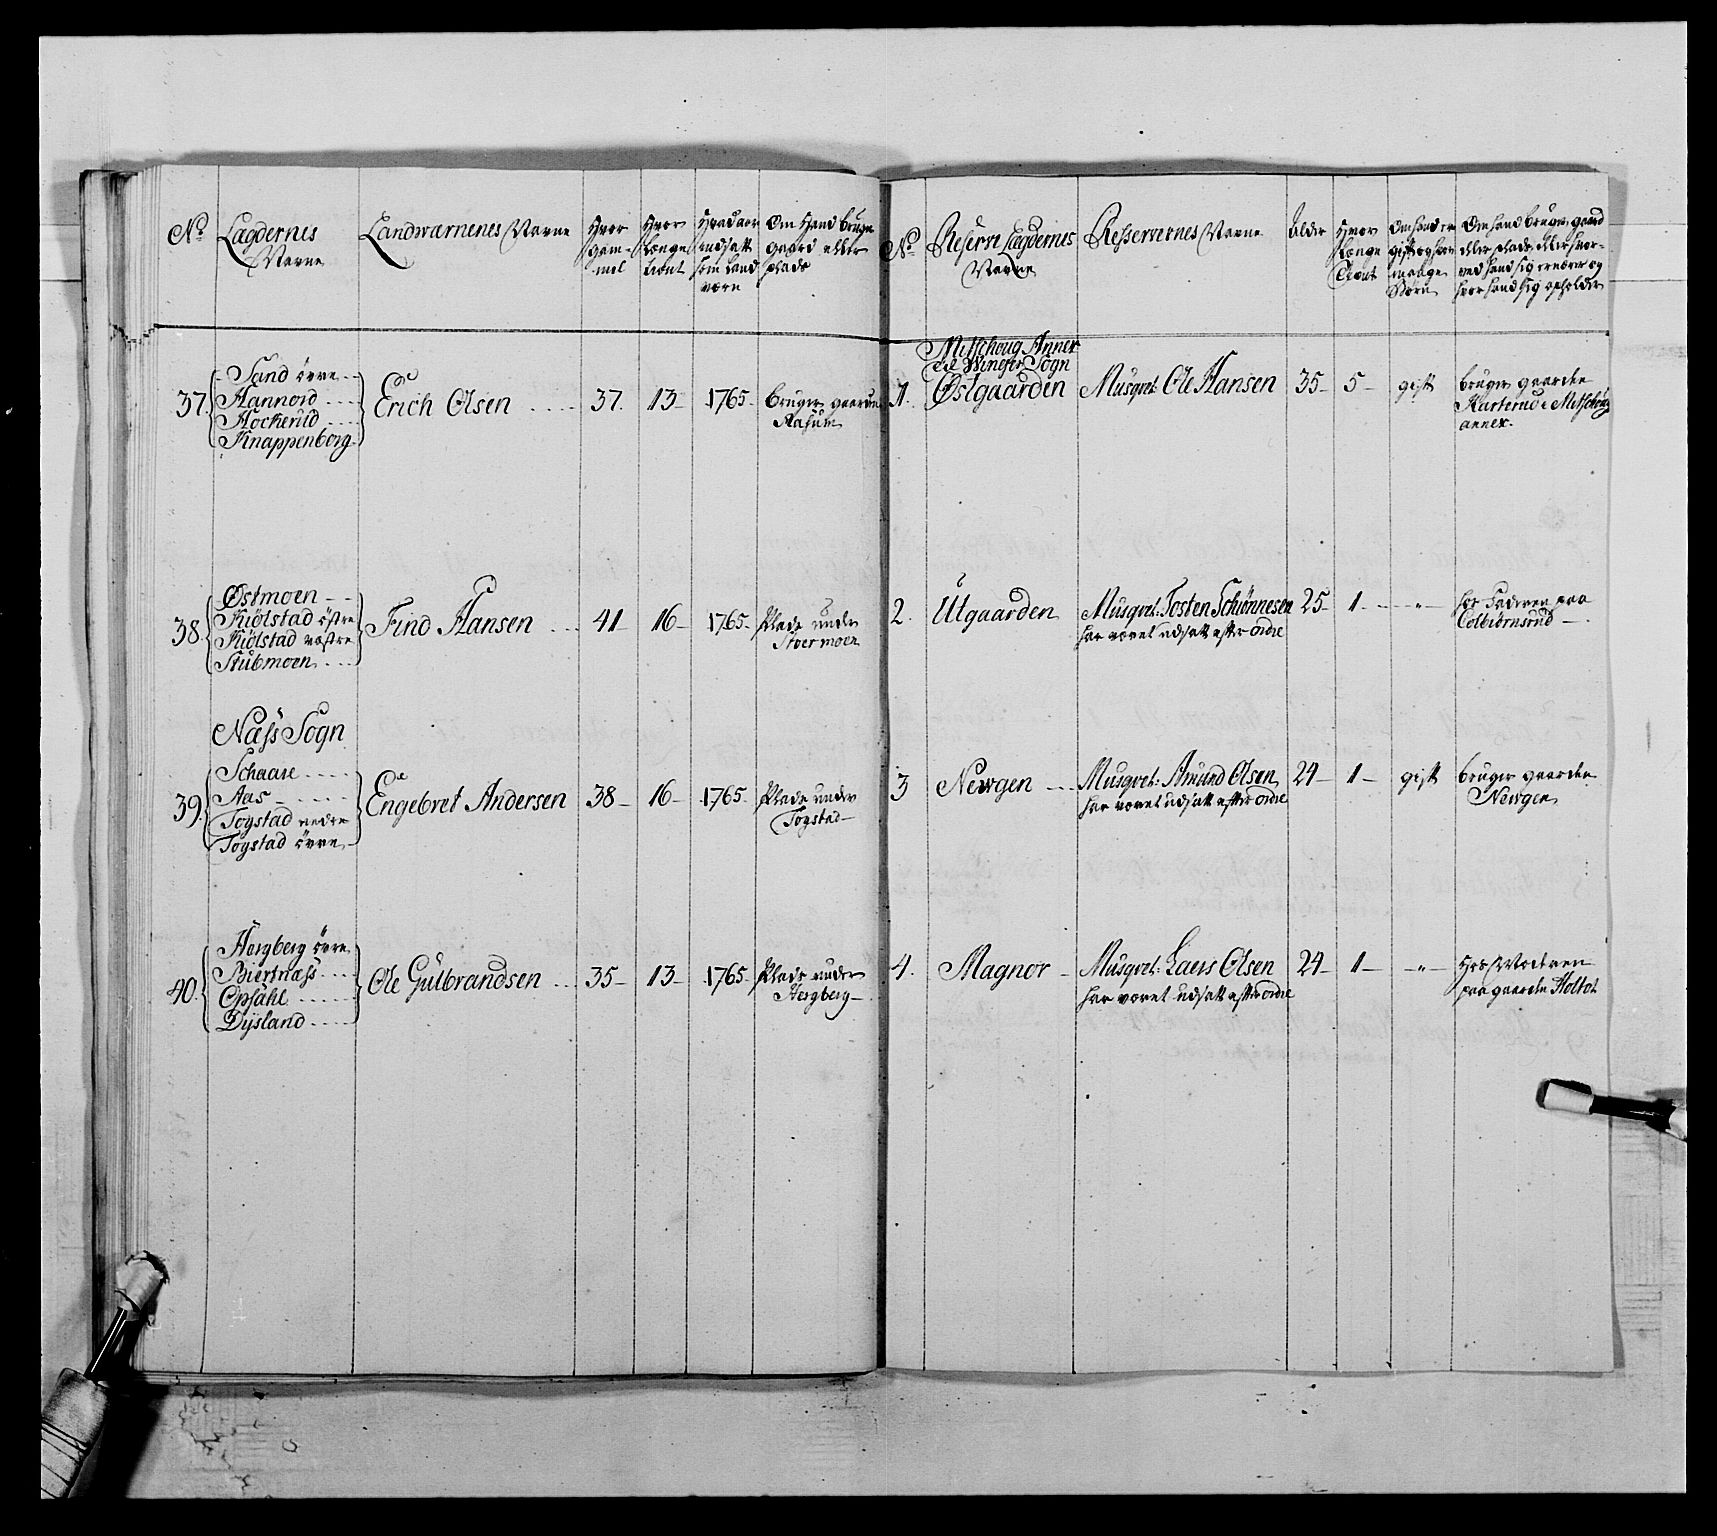 No
Lægdernes
Navne
Landwærnenes Navne
Hvor
gam-
mel
Hvor
længe
tient
Hvad aar
udsatt
som Land
værn
Om Hand bruger
gaard eller
plads
37.
Sand övre
Hannord
Hocherud
Knappenborg
Erich Olsen
37.
13
1765
bruger gaarden
Aasum
38
Østmoen
Kiölstad östre
Kiölstad væstre
Stubmoen
Find Hansen
41
16
1765
Plads under
Stoermoen
Næss Sogn
39.
Schaare
Aas
Togstad nedre
Togstad övre
Engebret Andersen
38
16
1765
Plads under
Togstad
40.
Hergberg övre
Biertnæss
Opsahl
Dysland
Ole Gulbrandsen
35
13
1765
Plads under
Hergberg
No
Reserve Lægdernes
Navne
Resservernes Navne
Alder
Hvor
længe
tient
Om hand er
gift og hvor
mange
Börn
Om hand bruger gaard
eller plads eller hvor-
ved hand sig ernærer og
hvor hand sig opholder
Mitschoug Annex
til Winger Sogn
1.
Østgaarden
Musqvet: Ole Hansen
35
5
gift
bruger gaarden
Karterud i Mitschoug
annex.
2.
Utgaarden
Musqvet: Tosten Schönnesen
har været udsatt efter ordre
25
1
"
hos Faderen paa
Colbiörnsrud
3
Newgen
Musqvet: Amund Olsen
har været udsatt efter ordre
24
1
gift
bruger gaarden
Newgen
4.
Magnor
Musqvet: Laers Olsen
har været udsatt efter ordre
24
1
"
Hos Moderen
paa gaarden Holtet